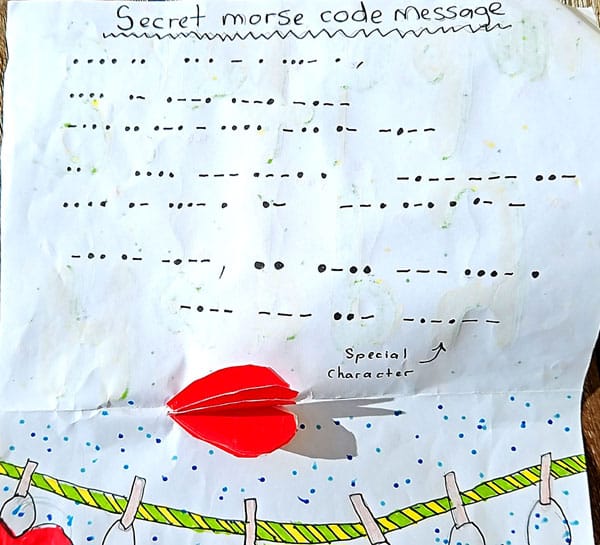 Secret morse code message
.... .. ... - . ...- . ,
.... .- .--. .--. -.--
-... .. .-. - .... -.. .- -.--
.. .... --- .--. . -.-- --- ..-
.... .- ...- . .- --. .-. . .- -
-.. .- -.-- , .. .-.. --- ...- .
-.-- --- ..- -.-.--
Special
Character